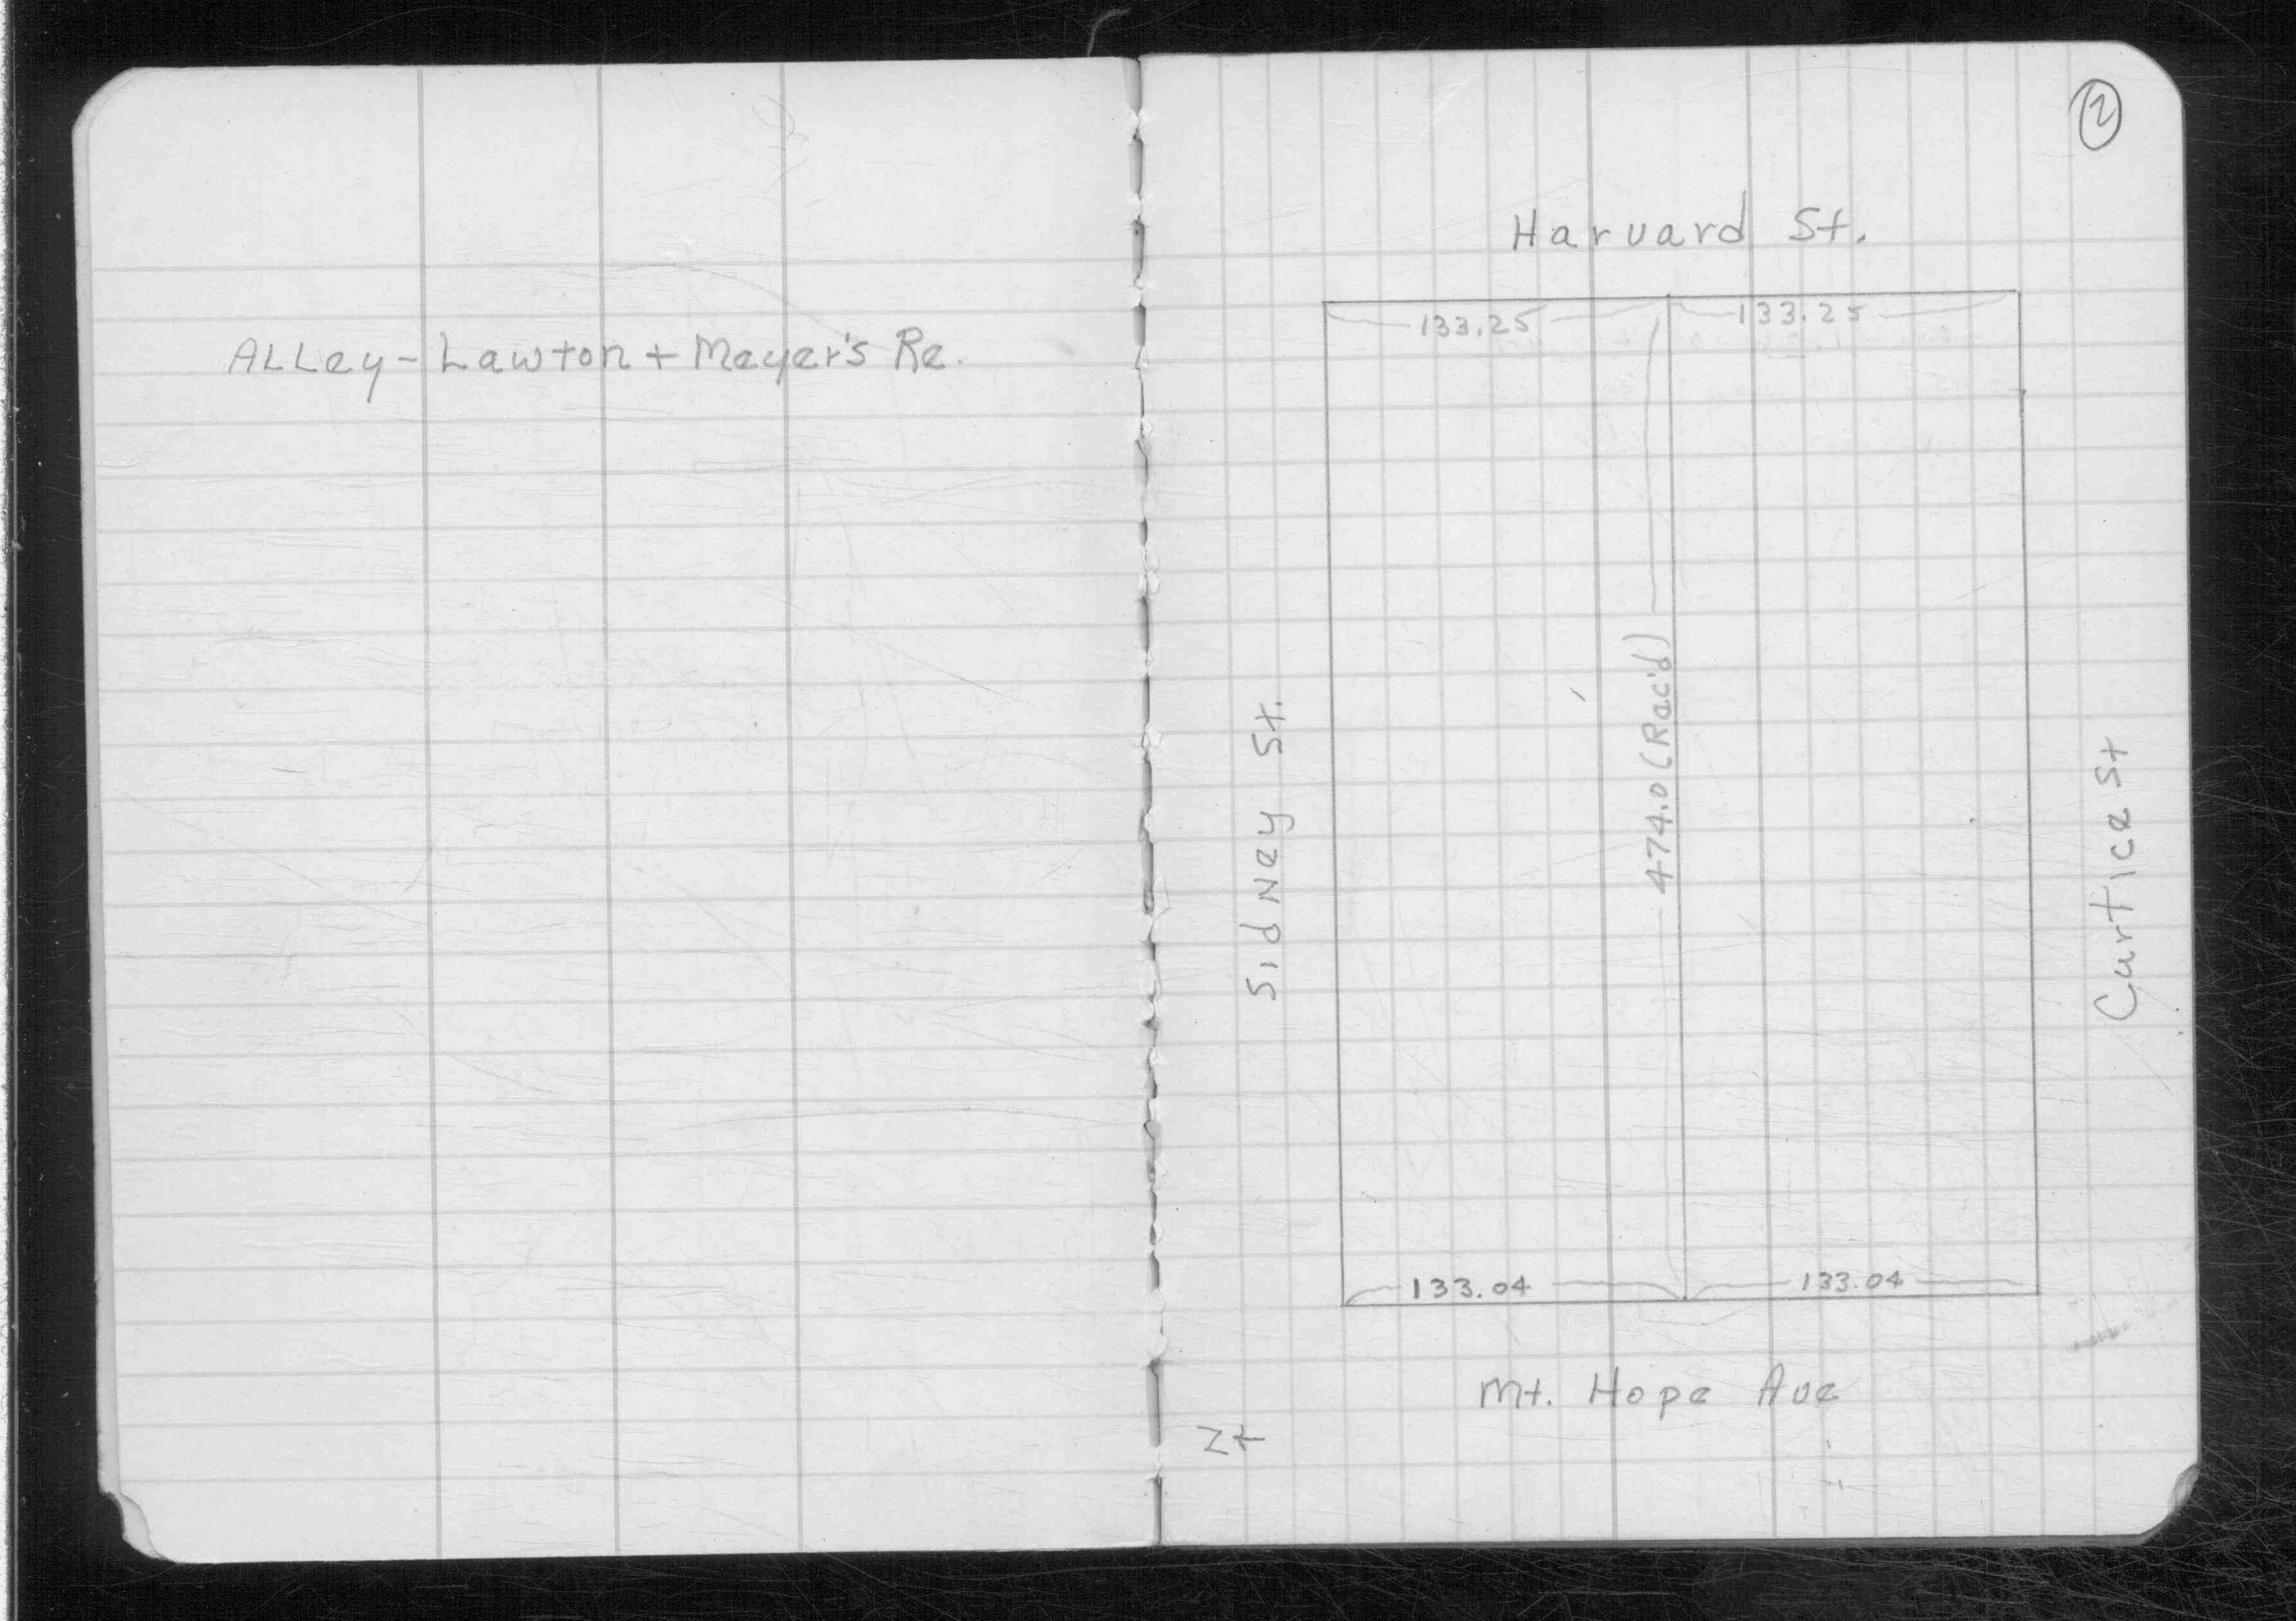 ALLey - Lawton + Meyer's Re.
2
Harvard St.
133.25 133.25
Sidney St.
474.0 (Rec'd)
Curtice St
133.04 133.04
Mt. Hope Ave